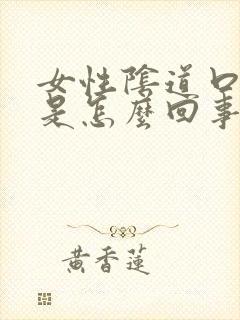 女性陰道口
是怎麼回事
黃香蓮